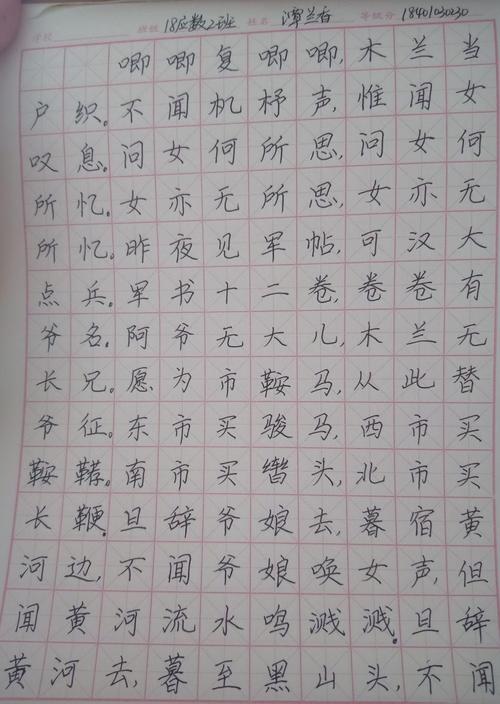 学校 班级 18应数2班 姓名 潭兰香 等级分 1840103030
唧唧复唧唧,木兰当
户织。不闻机杼声,惟闻女
叹息。问女何所思,问女何
所忆。女亦无所思,女亦无
所忆。昨夜见军帖,可汗大
点兵。军书十二卷,卷卷有
爷名。阿爷无大儿,木兰无
长兄。愿为市鞍马,从此替
爷征。东市买骏马,西市买
鞍鞯。南市买辔头,北市买
长鞭。旦辞爷娘去,暮宿黄
河边,不闻爷娘唤女声,但
闻黄河流水鸣溅溅。旦辞
黄河去,暮至黑山头,不闻